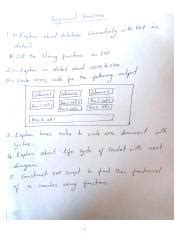 Assignment Questions
1. a) Explain about database Connectivity with PHP in
detail
b) List the String functions in PHP
2. a) Explain in detail about
b) Write HTML code for the following output
Column 1 Column 2 Column 3
Row 1 cell 1 Row 1 cell 2 Row 1 cell 3
Row 2 cell 1
Row 3 cell 1
3. Explain basic rules to write XML document with
Syntax.
4. Explain about Life Cycle of Servlet with neat
diagram
5. Construct PHP Script to find the factorial
of a number using functions